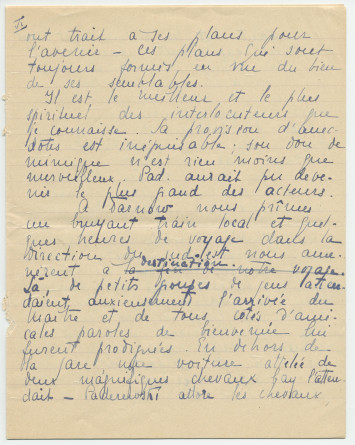 ont trait à ses plans pour
l'avenir - ces plans qui sont
toujours formés en vue du bien
de ses semblables.
Il est le meilleur et le plus
spirituel des interlocuteurs que
je connaisse. Sa provision d'anec-
dotes est inépuisable; son don de
mimique n'est rien moins que
merveilleux. Pad. aurait pu deve-
nir le plus grand des acteurs.
A Tarnów nous prîmes
un bruyant train local et quel-
ques heures de voyage dans la
direction du sud-est nous ame-
nèrent à la fin de notre voyage.
destination.
Là, de petits groupes de gens atten-
daient anxieusement l'arrivée du
maître et de tous côtés d'ami-
cales paroles de bienvenue lui
furent prodiguées. En dehors de
la gare une voiture attelée de
deux magnifiques chevaux bay l'atten-
dait - Paderewski adore les chevaux